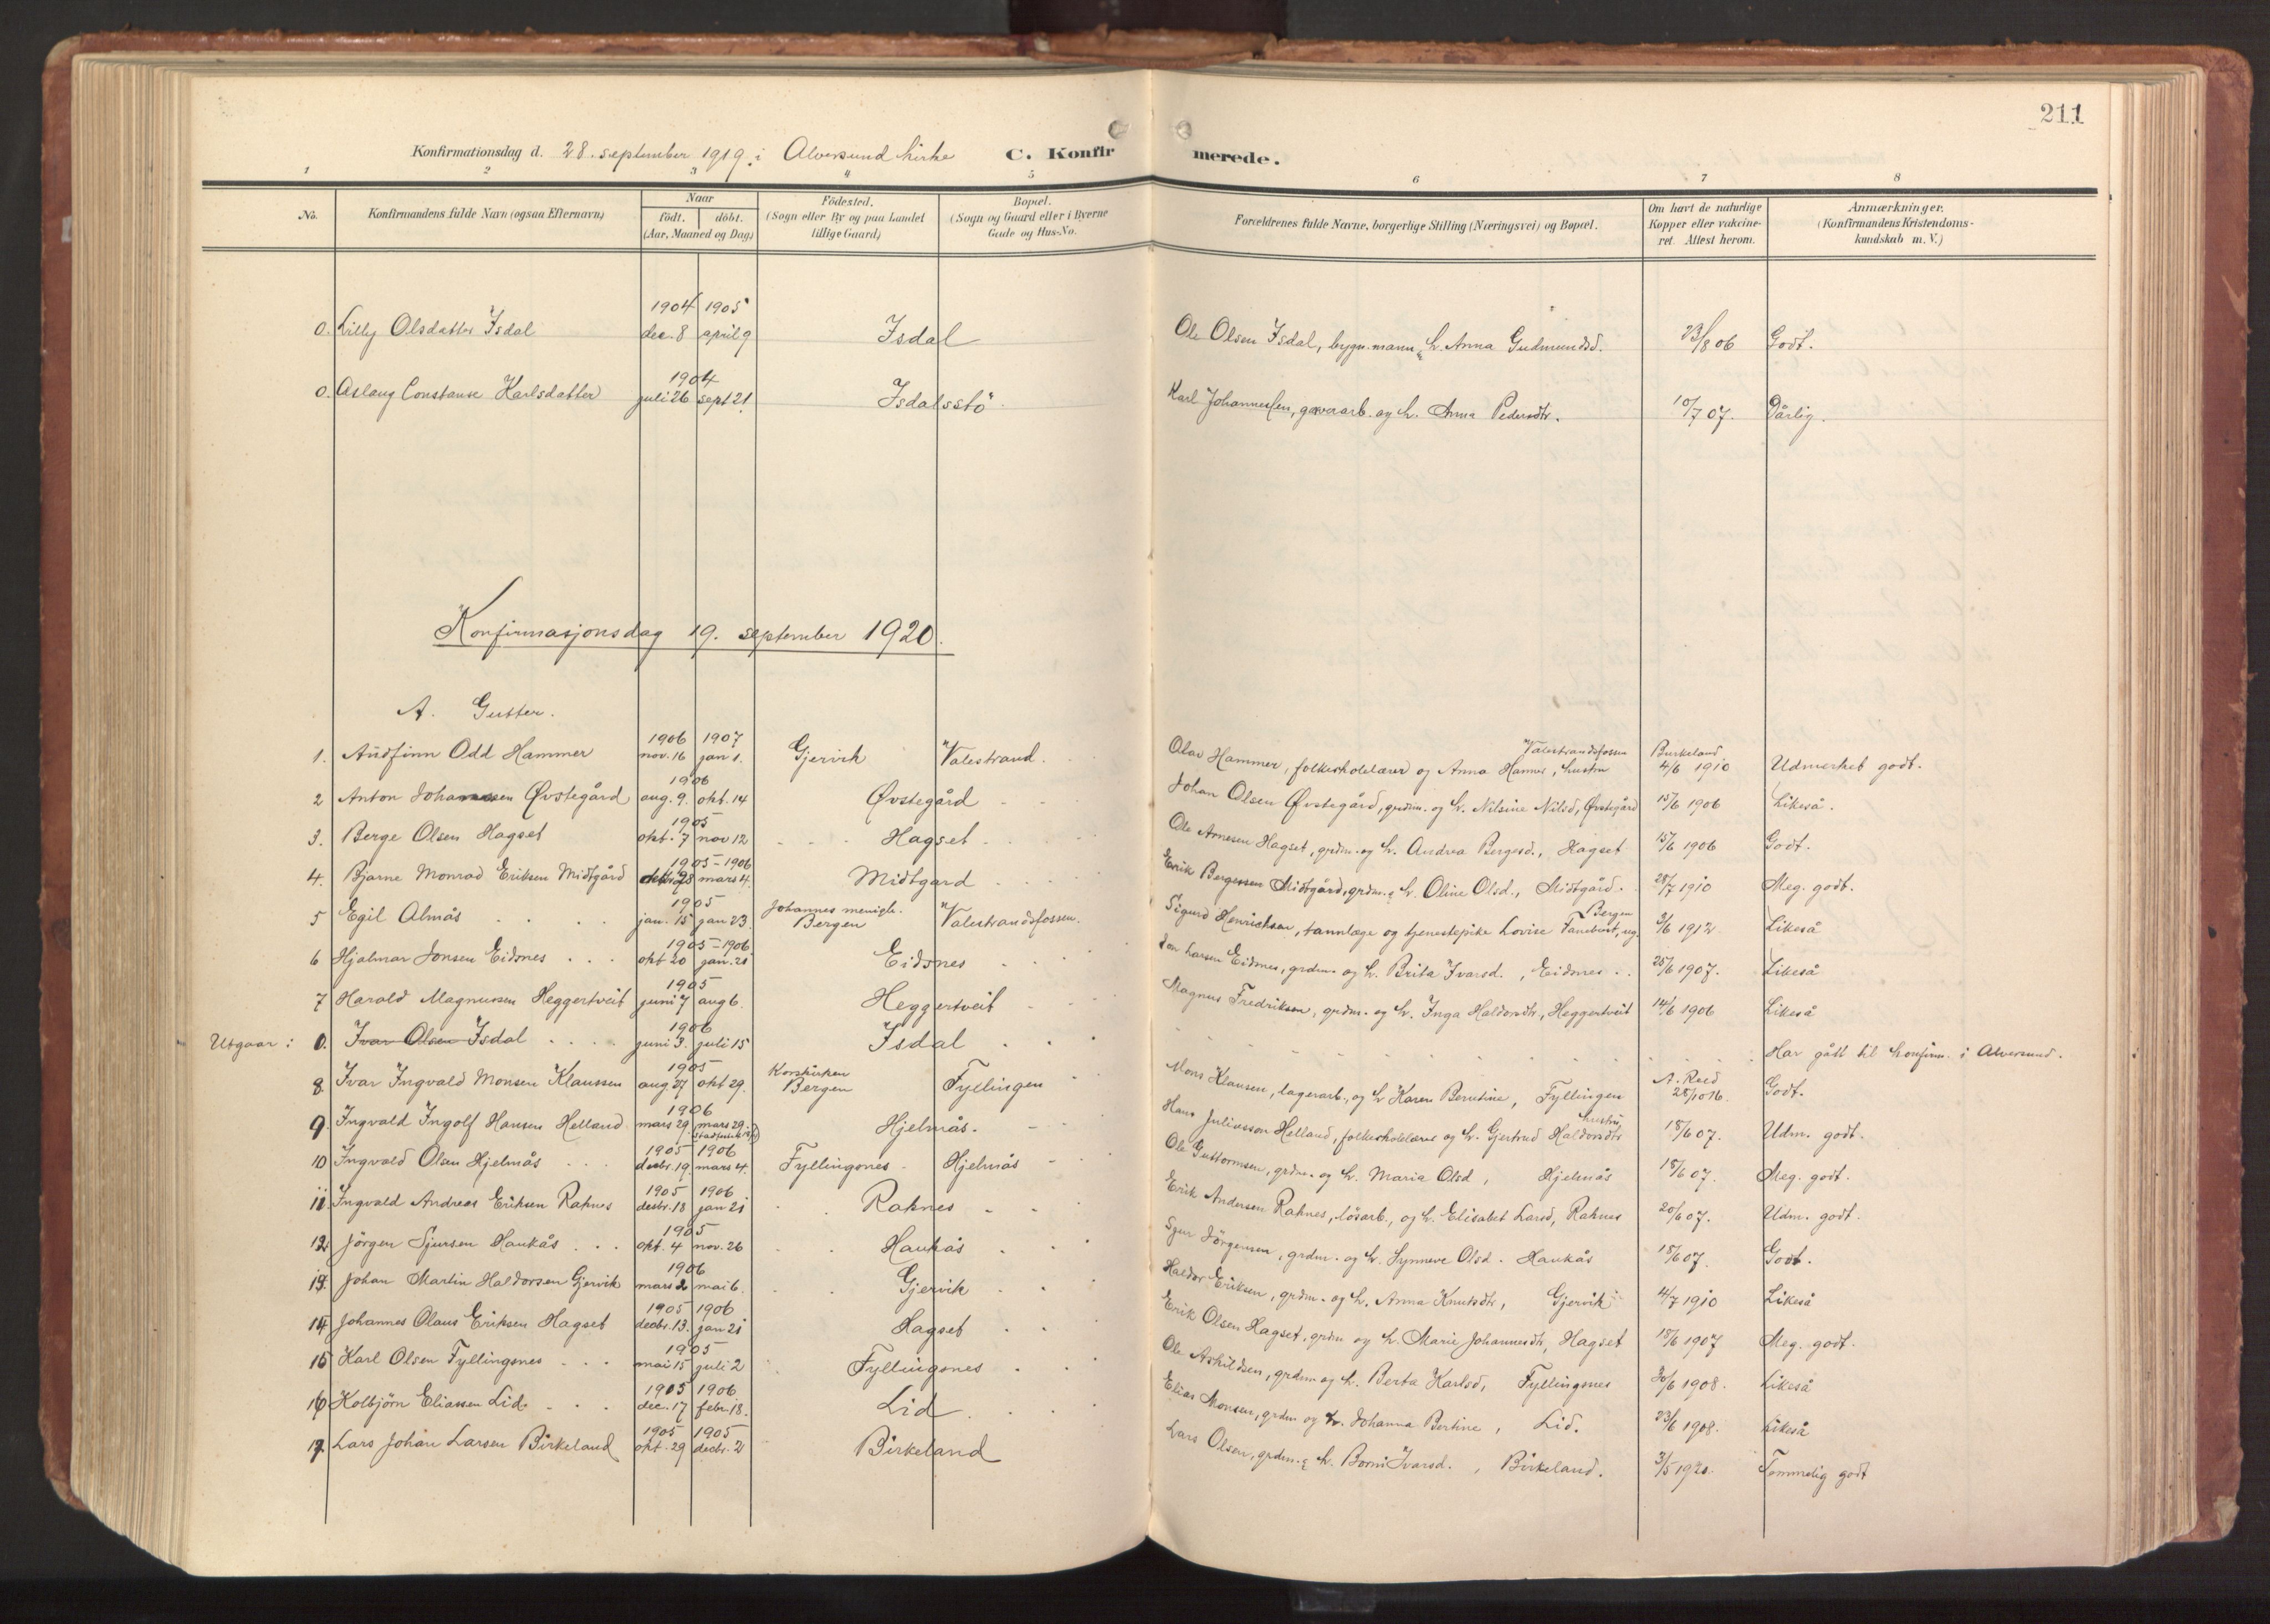 211
Konfirmationsdag d. 28. september 1919 i Alversund kirke C. Konfirmerede.
1 2 3 4 5 6 7 8
No. Konfirmandens fulde Navn (ogsaa Efternavn) Naar født. døbt. (Aar, Maaned og Dag) Födested. (Sogn eller By og paa Landet tillige Gaard) Bopæl. (Sogn og Gaard eller i Byerne Gade og Hus-No. Forældrenes fulde Navne, borgerlige Stilling (Næringsvei) og Bopæl. Om havt de naturlige Kopper eller vakcineret. Attest herom. Anmærkninger. (Konfirmandens Kristendomskundskab m. V.)
0. Lilly Olsdatter Isdal 1904 dec. 8 1905 april 9 Isdal Ole Olsen Isdal, bygn.mann & h. Anna Gudmundsd. 23/8 06 Godt.
0. Aslaug Constanse Karlsdatter 1904 juli 26 sept 21 Isdalsstö Karl Johannessen, garverarb. og h. Anna Pedersdtr. 10/7 07. Dårlig.
Konfirmasjonsdag 19. september 1920.
A. Gutter.
1. Audfinn Odd Hammer 1906 nov. 16 1907 jan 1. Gjervik Valestrand. Olav Hammer, folkeskolelærer og Anna Hammer, hustru Valestrandsfossen Burkeland 4/6 1910 Udmerket godt.
2 Anton Johannessen Øvstegård 1906 aug. 9. okt. 14 Øvstegård Johan Olsen Øvstegård, grdm. og h. Nilsine Nilsd, Øvstegård 15/6 1906 Likeså.
3. Berge Olsen Hagset 1905 okt. 7 nov 12 Hagset Ole Arnesen Hagset, grdm. og h. Andrea Bergesd., Hagset 15/6 1906 Godt.
4. Bjarne Monrad Eriksen Midtgård 1905-1906 28 mars 4. Midtgard Erik Bergessen Midtgård, grdm. & h. Oline Olsd., Midtgård. 28/7 1910 Meg. godt.
5 Egil Almås 1905 jan. 15 jan 23. Johannes menigh. Bergen Valestrandsfossen. Sigurd Henrichsen, tannlæge og tjenestepike Lovise Tanebust, ug. Bergen 3/6 1912 Likeså
6 Hjalmar Jonsen Eidsnes 1905-1906 okt 20 jan. 21 Eidsnes Jon Larsen Eidsnes, grdm. og h. Brita Ivarsd., Eidsnes 25/6 1907. Likeså
7 Harald Magnussen Heggertveit 1905 juni 7 aug 6. Heggertveit Magnus Fredriksen, grdm. og h. Inga Haldorsdtr., Heggertveit 14/6 1906 Likeså
Utgaar: 0. Ivar Olsen Isdal 1906 juni 3. juli 15 Isdal Har gått til konfirm. i Alversund.
8. Ivar Ingvald Monsen Klaussen 1905 aug 27 okt 29. Korskirken Bergen Fyllingen Mons Klausen, lagerarb., og h Karen Berntine, Fyllingen A. Reed 28/10 16. Godt.
9. Ingvald Ingolf Hansen Helland 1906 mars 29 mars 29. Hjelmås. Hans Juliusson Helland, folkeskolelærer og h. Gjertrud Haldorsdtr hustru, 18/6 07. Udm. godt.
10 Ingvald Olsen Hjelmås 1905 decbr. 19. 1906 mars 4. Fyllingsnes Hjelmås Ole Guttormsen, grdm. og h. Maria Olsd, Hjelmås 18/6 07. Meg. godt.
11. Ingvald Andreas Eriksen Raknes 1905 decbr. 18 1906 jan 21 Raknes Erik Andersen Raknes, lösarb., og h. Elisabet Larsd, Raknes 20/6 07. Udm. godt.
12. Jörgen Sjursen Haukås 1905 okt. 4 nov. 26 Haukås Sjur Jörgensen, grdm. og h. Synneve Olsd. Haukås 18/6 07. Godt.
13. Johan Martin Haldorsen Gjervik 1906 mars 2 mai 6. Gjervik Haldor Eriksen, grdm. og h. Anna Knutsdtr, Gjervik 4/7 1910 Likeså
14 Johannes Olaus Eriksen Hagset 1905 decbr. 13. 1906 jan 21 Hagset Erik Olsen Hagset, grdm og h. Marie Johannesdtr, Hagset 18/6 1907 Meg. godt.
15 Karl Olsen Fyllingsnes 1905 mai 15 juli 2 Fyllingsnes Ole Askildsen, grdm og h. Berta Karlsd, Fyllingsnes 30/6 1908. Likeså
16 Kolbjörn Eliassen Lid 1905 dec. 17 1906 febr. 18. Lid Elias Monsen, grdm. og h. Johanna Bertine, Lid. 23/6 1908. Likeså
17. Lars Johan Larsen Birkeland 1905 okt. 29 1905 decbr. 21 Birkeland Lars Olsen, grdm. & h. Borni Ivarsd., Birkeland. 3/5 1920. Temmelig godt